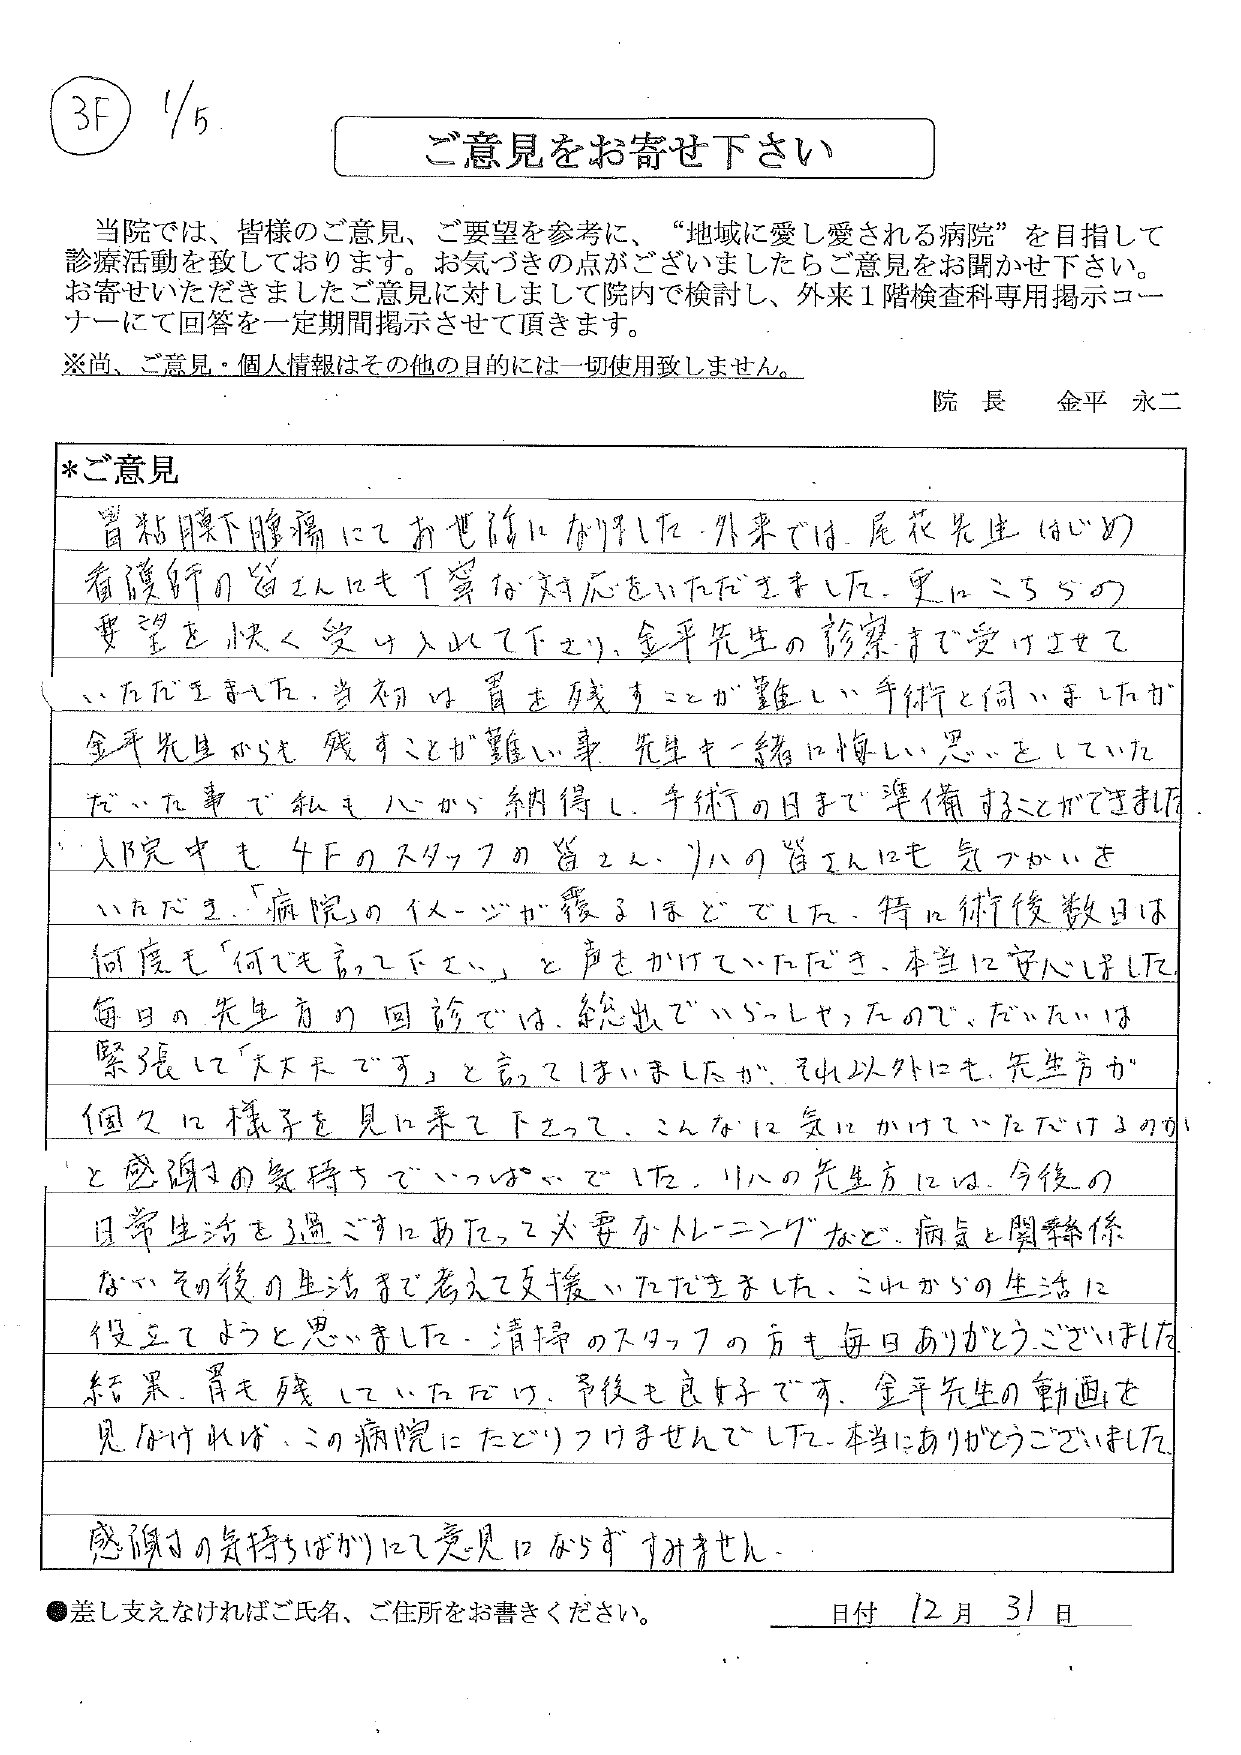 3F 1/5
ご意見をお寄せ下さい
当院では、皆様のご意見、ご要望を参考に、“地域に愛し愛される病院”を目指して
診療活動を致しております。お気づきの点がございましたらご意見をお聞かせ下さい。
お寄せいただきましたご意見に対しまして院内で検討し、外来1階検査科専用掲示コー
ナーにて回答を一定期間掲示させて頂きます。
※尚、ご意見・個人情報はその他の目的には一切使用致しません。
院 長 金平 永二
*ご意見
胃粘膜下腫瘍にてお世話になりました。外来では、尾花先生はじめ
看護師の皆さんにも丁寧な対応をいただきました。更にこちらの
要望を快く受け入れて下さり、金平先生の診察まで受けさせて
いただきました。当初は胃を残すことが難しい手術と伺いましたが
金平先生からも残すことが難しい事 先生も一緒に悔しい思いをしていた
だいた事で私も心から納得し、手術の日まで準備することができました。
入院中も4Fのスタッフの皆さん、リハの皆さんにも気づかいを
いただき、「病院」のイメージが覆るほどでした。特に術後数日は
何度も「何でも言って下さい」と声をかけていただき、本当に安心しました。
毎日の先生方の回診では、総出でいらっしゃったので、だいたいは
緊張して「大丈夫です」と言ってしまいましたが、それ以外にも、先生方が
個々に様子を見に来て下さって、こんなに気にかけていただけるのか
と感謝の気持ちでいっぱいでした。リハの先生方には、今後の
日常生活を過ごすにあたって必要なトレーニングなど、病気と関係
ないその後の生活まで考えて支援いただきました。これからの生活に
役立てようと思いました。清掃のスタッフの方も毎日ありがとうございました。
結果、胃も残していただけ、予後も良好です。金平先生の動画を
見なければ、この病院にたどりつけませんでした。本当にありがとうございました。
感謝の気持ちばかりにて意見にならずすみません。
●差し支えなければご氏名、ご住所をお書きください。 日付 12月 31日